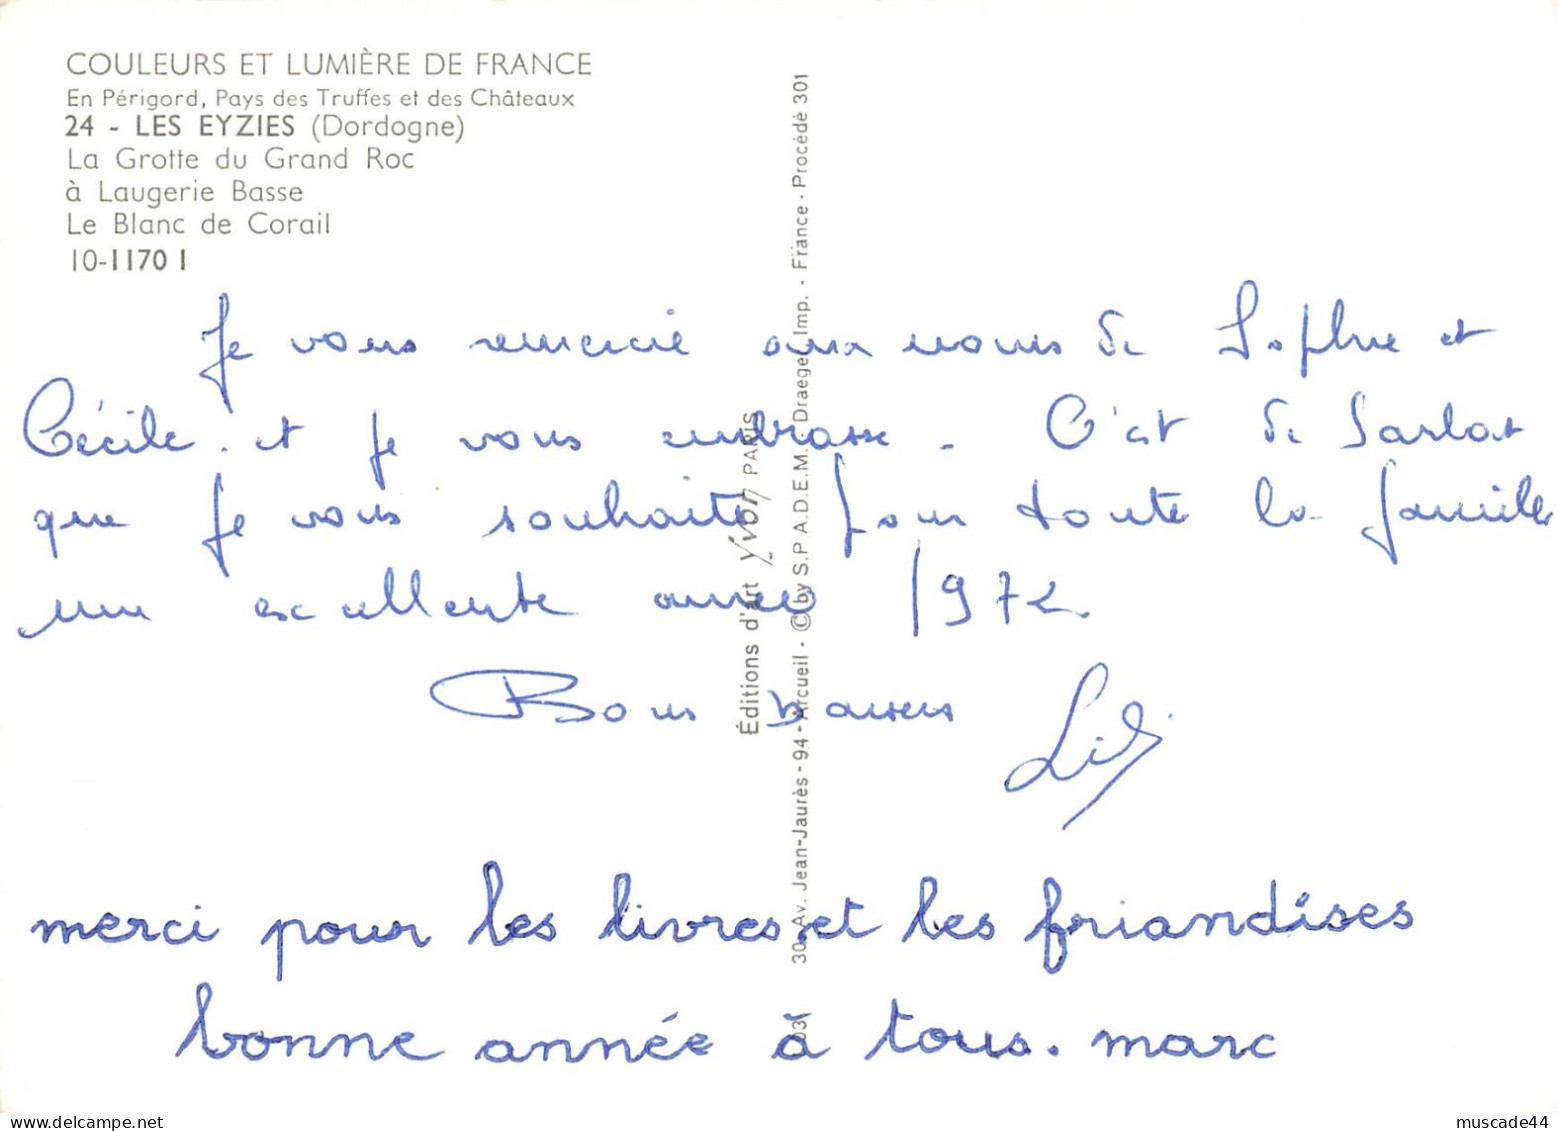 COULEURS ET LUMIÈRE DE FRANCE
En Périgord, Pays des Truffes et des Châteaux
24 - LES EYZIES (Dordogne)
La Grotte du Grand Roc
à Laugerie Basse
Le Blanc de Corail
10-11701
Je vous remercie aux noms de Sophie et
Cécile. et je vous embrasse. C'est de Sarlat
que je vous souhaite pour toute la famille
une excellente année 1972
Bons baisers
merci pour les livres et les friandises
bonne année à tous. marc
Éditions d'art Yvon PARIS
30, Av. Jean-Jaurès - 94 - Arcueil - © by S.P.A.D.E.M. Draeger Imp. - France - Procédé 301
muscade44